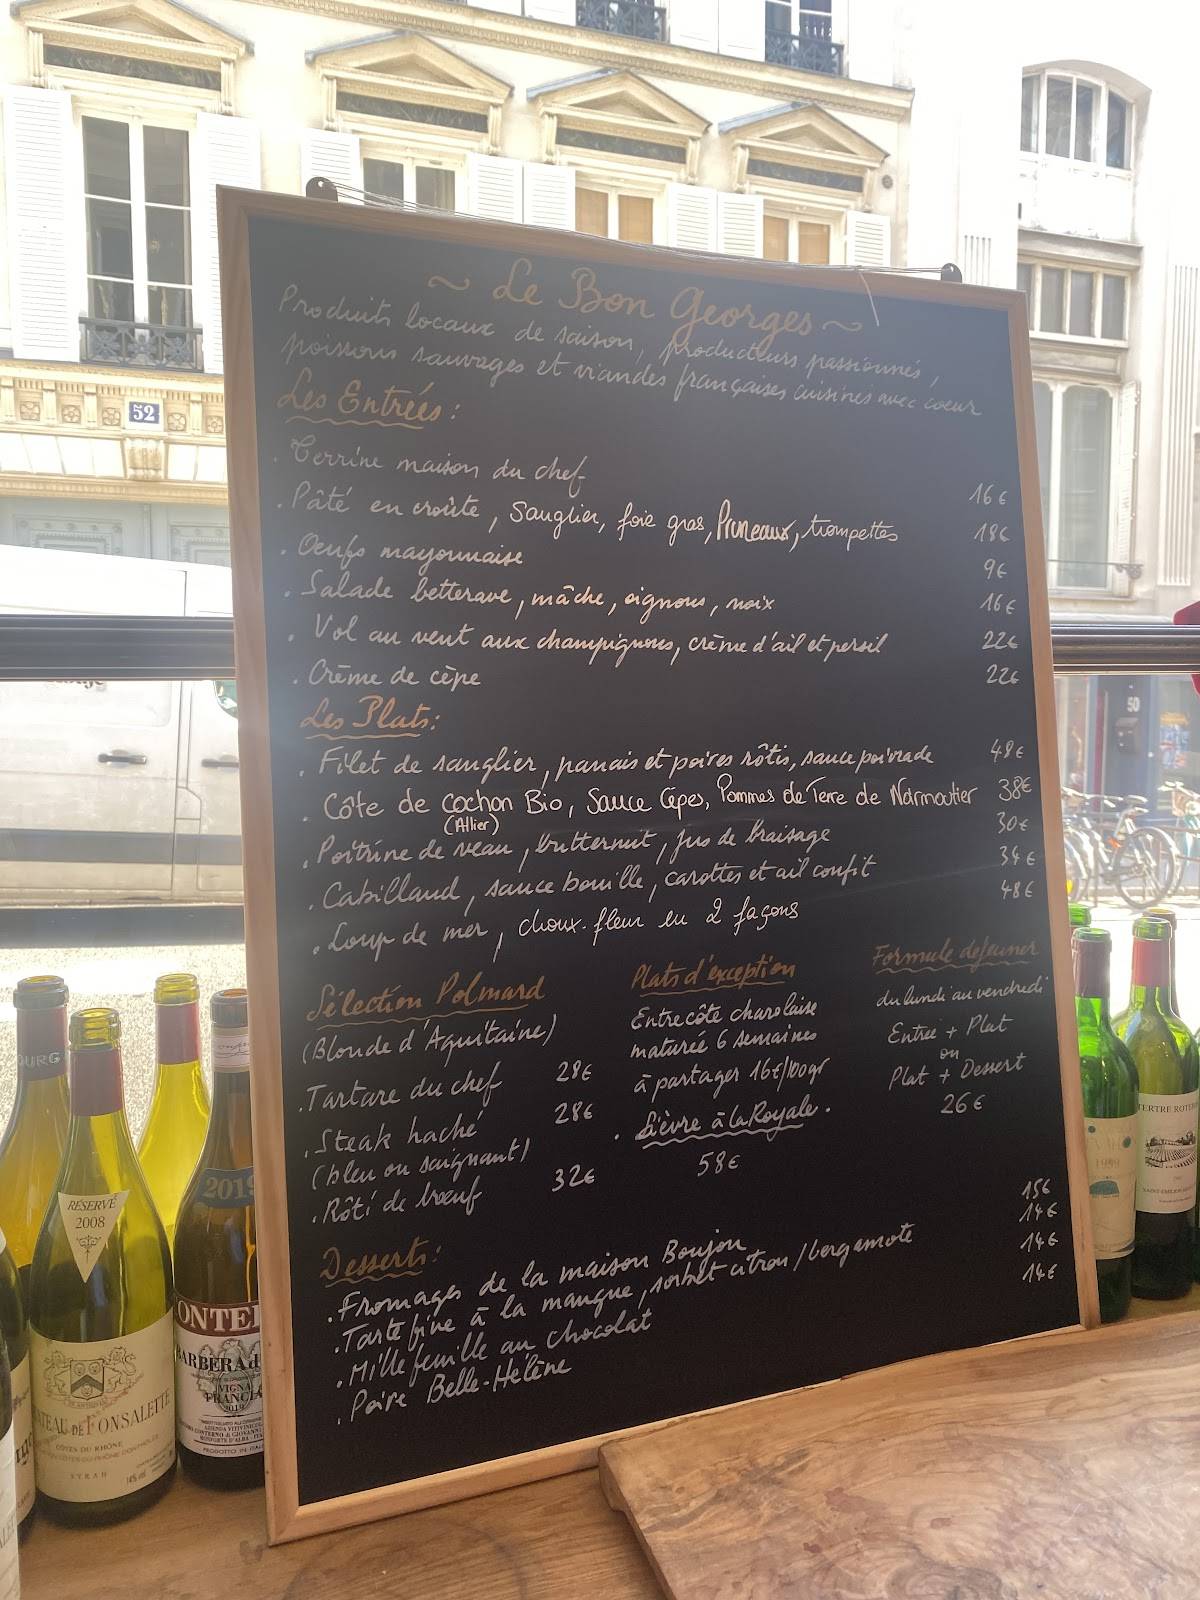 52
~ Le Bon Georges ~
Produits locaux de saison, producteurs passionnés,
poissons sauvages et viandes françaises cuisinés avec coeur
Les Entrées :
. Terrine maison du chef 16€
. Pâté en croûte, Sanglier, foie gras, Pruneaux, trompettes 18€
. Oeufs mayonnaise 9€
. Salade betterave, mâche, oignons, noix 16€
. Vol au vent aux champignons, crème d'ail et persil 22€
. Crème de cèpe 22€
Les Plats :
. Filet de sanglier, panais et poires rôtis, sauce poivrade 48€
. Côte de cochon Bio, Sauce Cêpes, Pommes de Terre de Noirmoutier 38€
(Allier)
. Poitrine de veau, butternut, jus de braisage 30€
. Cabillaud, sauce bouille, carottes et ail confit 34€
. Loup de mer, choux-fleur en 2 façons 48€
Sélection Polmard
(Blonde d'Aquitaine)
. Tartare du chef 28€
. Steak haché 28€
(bleu ou saignant)
. Rôti de boeuf 32€
Plats d'exception
Entrecôte charolaise
maturée 6 semaines
à partager 16€/100gr
. Lièvre à la Royale .
58€
Formule déjeuner
du lundi au vendredi
Entrée + Plat
ou
Plat + Dessert
26€
Desserts :
. Fromages de la maison Boujon 15€
. Tarte fine à la mangue, sorbet citron/bergamote 14€
. Mille feuille au chocolat 14€
. Poire Belle-Hélène 14€
50
URG
RÉSERVE
2008
TEAU DE FONSALETTE
CÔTES DU RHÔNE
SYRAH
14% vol
2019
ONTE
BARBERA d
VIGNA
FRANCI
2019
PRODOTTO IN ITAL
1999
TERTRE ROTE